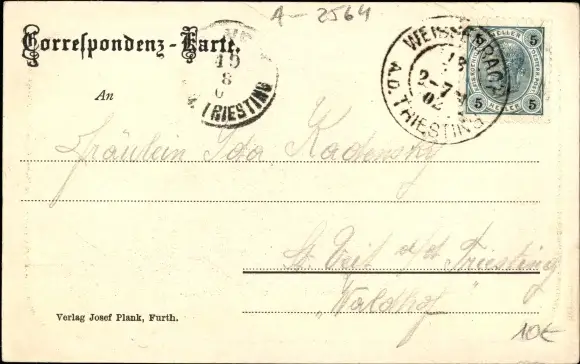 A-2564
Correspondenz-Karte.
19
8
TRIESTING
WEISSENBACH
2-7
02
A.D. TRIESTING
HELLER
5 5
5 5
HELLER
An
Fräulein Ida Kadensky
St. Veit a/d Triesting
"Waldhof"
Verlag Josef Plank, Furth.
10€